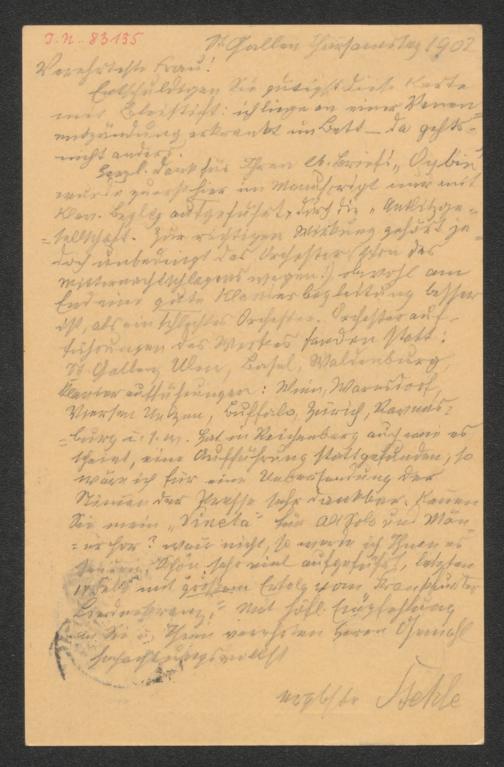 I.N. 83135
St. Gallen Charsamstag 1902
Verehrteste Frau!
Entschuldigen Sie gütigst diese Karte
mit Bleistift: ich liege an einer Venen-
entzündung erkrankt im Bett – da gehts
nicht anders.
Herzl. Dank für Ihren lb. Brief! „Oybin
wurde zuerst hier im Manuscript nur mit
Klav. begltg aufgeführt, durch die
=sellschaft. Zur richtigen Wirkung gehört je-
doch unbedingt das Orchester (schon des
Mitternachtschlagens wegen!) obwohl am
End eine gute Klavierbegleitung besser
ist, als ein schlechtes Orchester. Orchesterauf-
führungen des Werkes fanden statt:
St Gallen, Ulm, Basel, Waldenburg
Klavieraufführungen: Wien, Warnsdorf,
Viersen, Buffalo, Zürich,
=burg u. s. w. Hat in Reichenberg auch wie es
scheint, eine Aufführung stattgefunden, so
wäre ich für eine Uebersendung der
Stimmen der Presse sehr dankbar. Kennen
Sie mein „Vineta" für Altsolo und Män-
=erchor? wenn nicht, so werde ich Ihnen es
senden. Schon sehr viel aufgeführt, letzten
mit großem Erfolg vom Frankfurter
Liederkranz." Mit höfl. Empfehlung
an Sie u. Ihren verehrten Herrn Gemahl
hochachtungsvollst